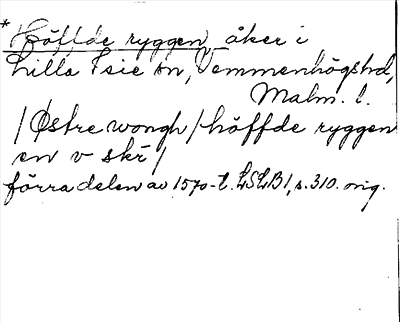 * Höffde ryggen, åker i
Lilla Isie sn, Vemmenhögshd,
Malm. l.
/Østre wongh/höffde ryggen
en v skr/
förra delen av 1570-t. LSLB1, s. 310. orig.